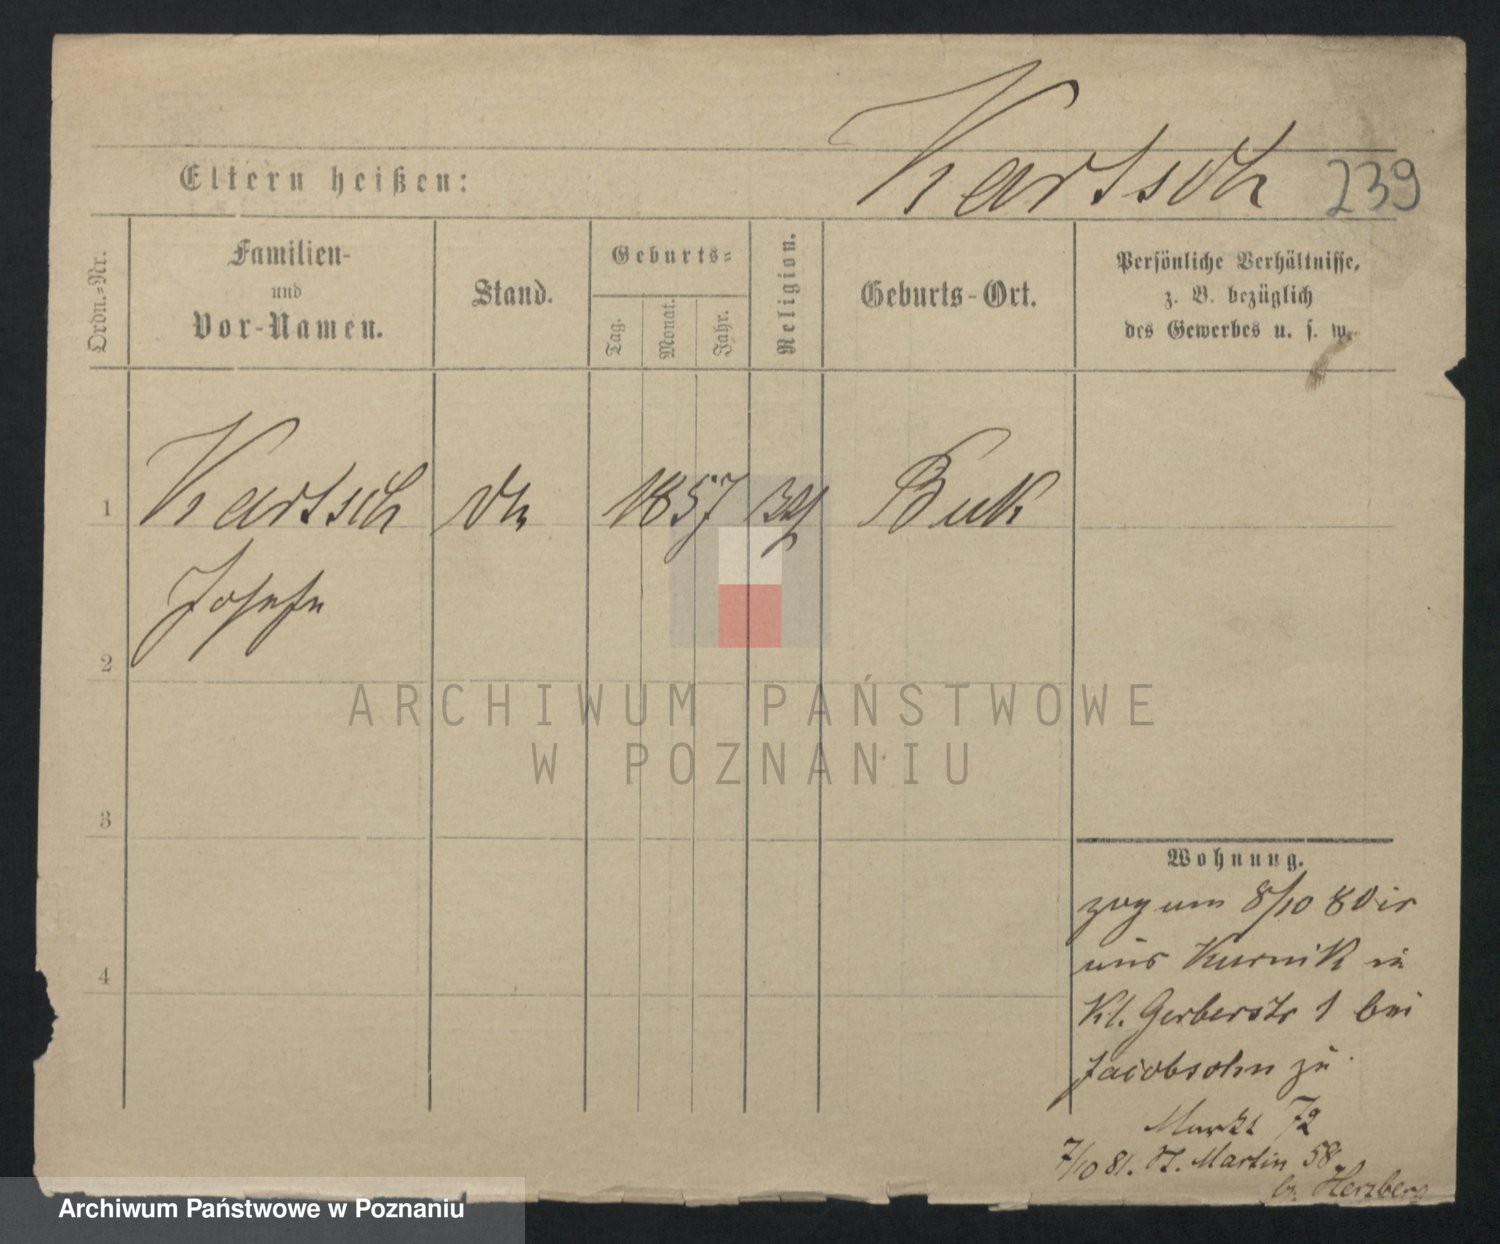 Kartsch 239
Eltern heißen:
Ordn.-Nr.
Familien-
und
Vor-Namen.
Stand.
Geburts-
Tag.
Monat.
Jahr.
Religion.
Geburts-Ort.
Persönliche Verhältnisse,
z. B. bezüglich
des Gewerbes u. s. w.
1 Kartsch 1857 Buk
Josefa
2
3
4
ARCHIWUM PAŃSTWOWE
W POZNANIU
Wohnung.
zog am 8/10 80
aus Kurnik in
Kl. Gerberstr 1 bei
Jacobsohn zu
Markt 72
7/10 81. St. Martin 58.
b. Herzberg
Archiwum Państwowe w Poznaniu